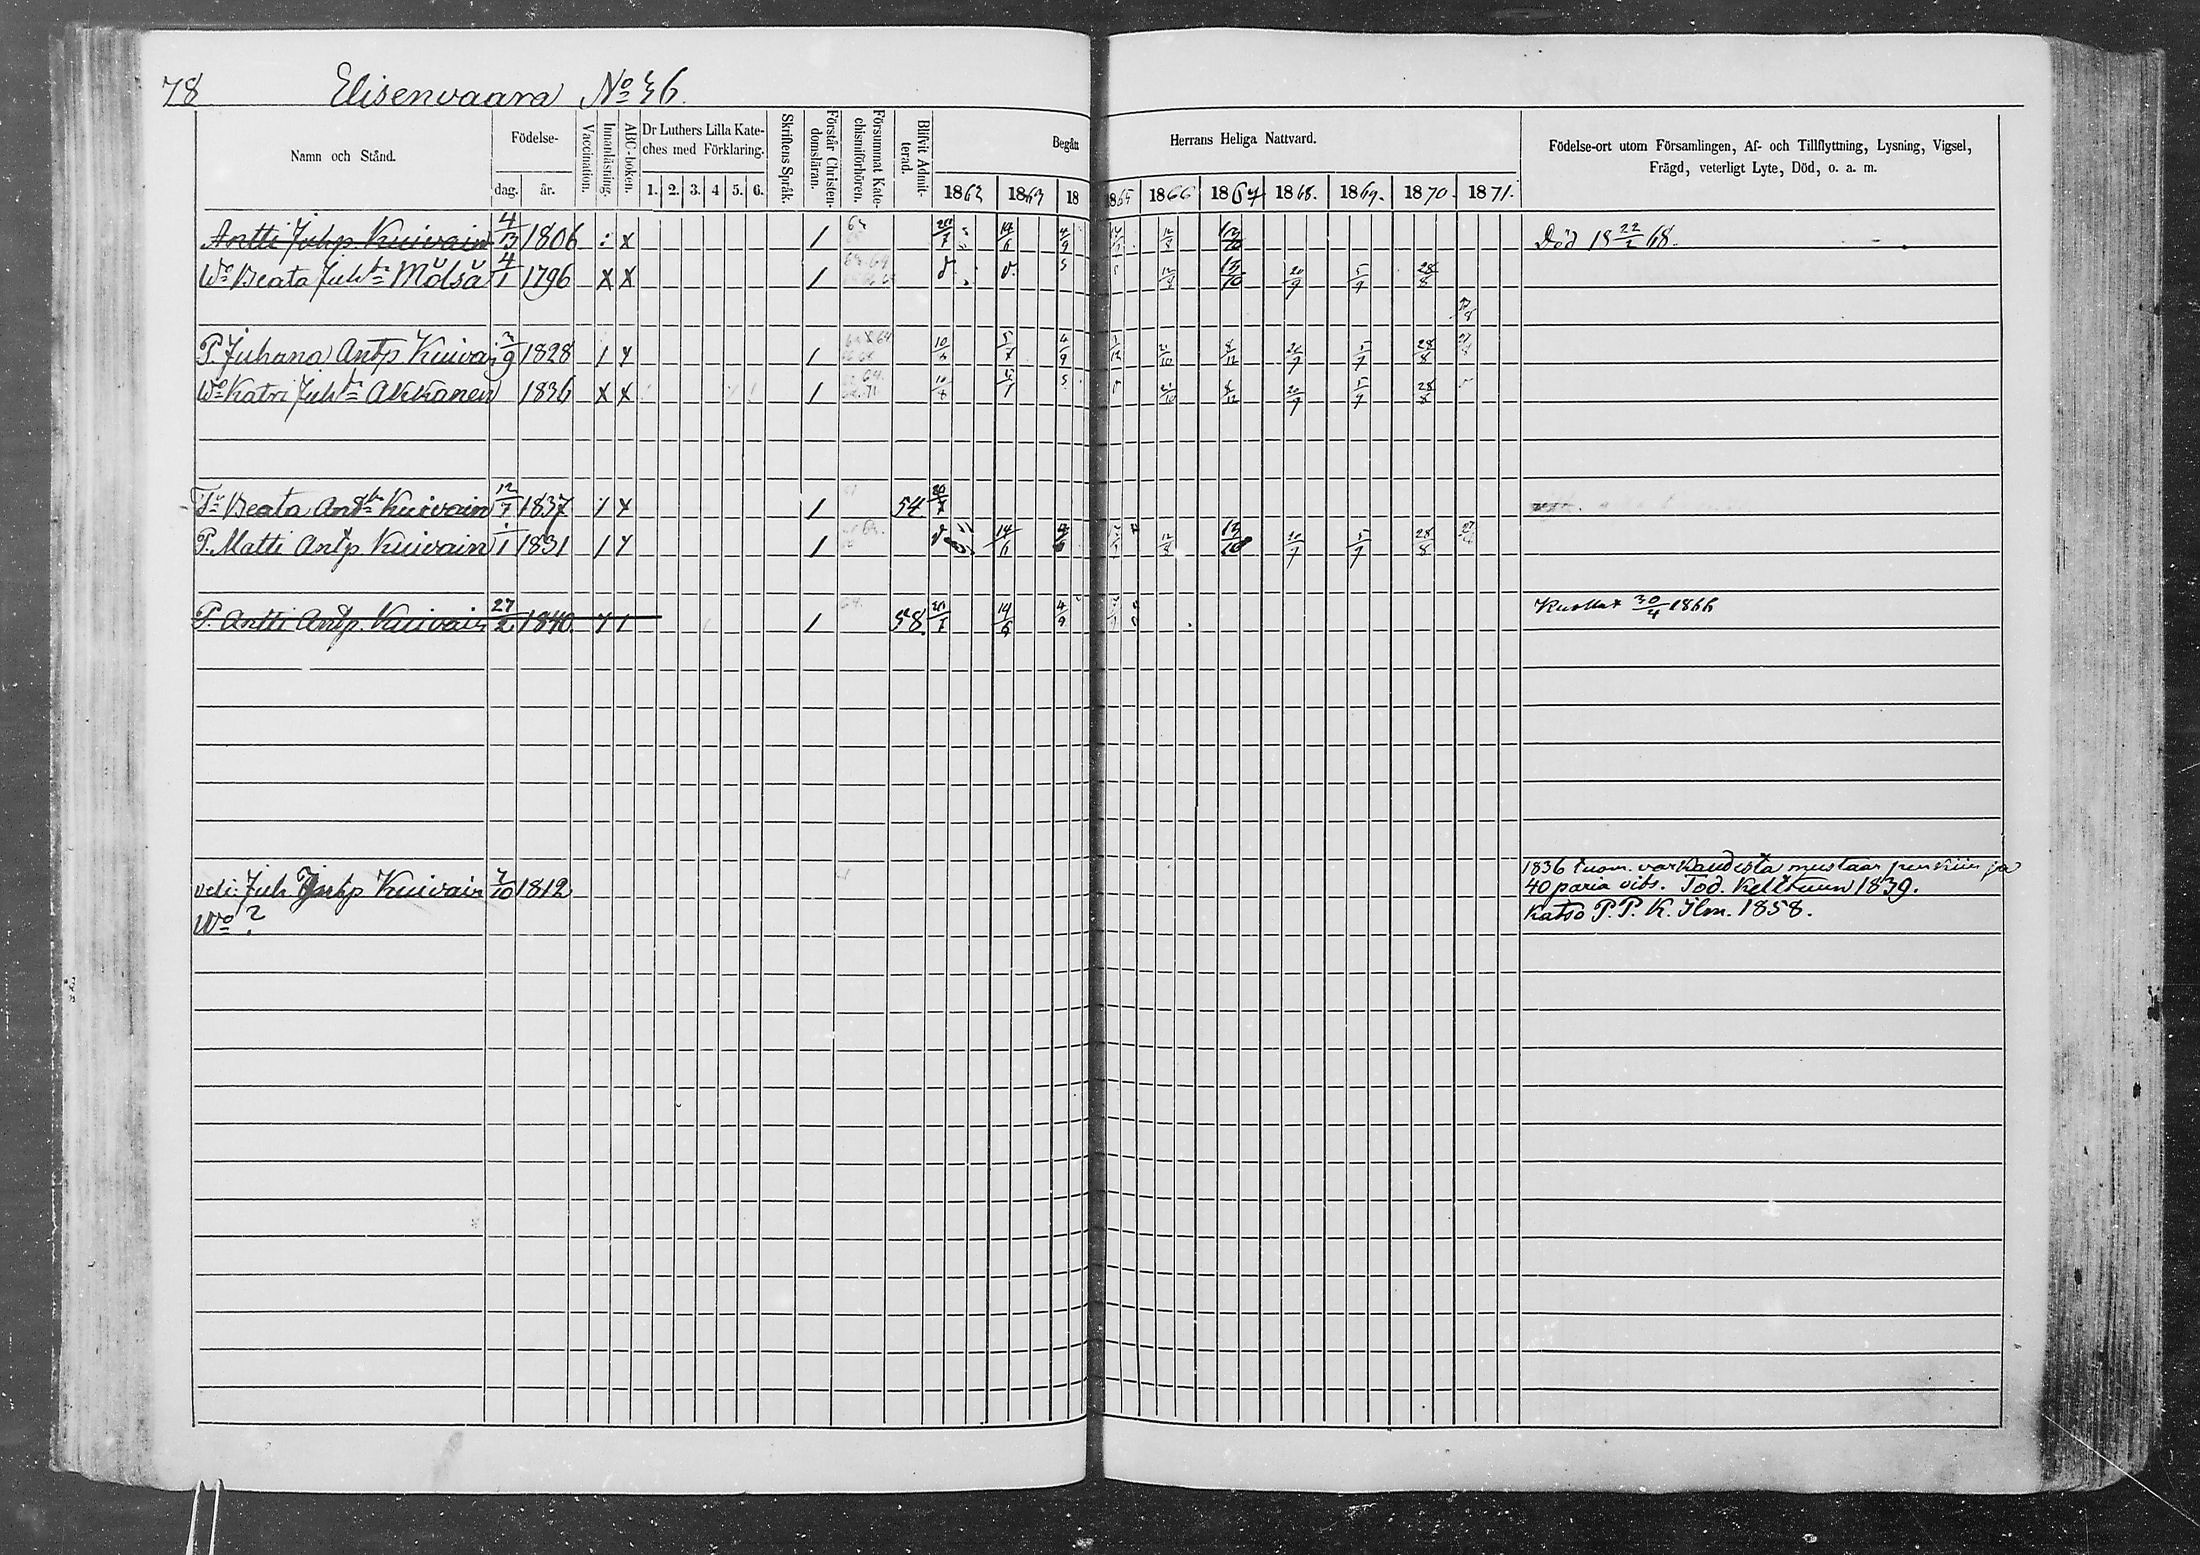 78 Elisenvaara No 36.
Namn och Stånd. Födelse- dag. år. Vaccination. Innanläsning. ABC-boken. Dr Luthers Lilla Kate-ches med Förklaring. 1. 2. 3. 4 5. 6. Skriftens Språk. Förstår Christen-domsläran. Försummat Kate-chismiförhören. Blifvit Admit-terad. Begått Herrans Heliga Nattvard. 1862 1863 18 1865 1866 1867 1868. 1869. 1870. 1871. Födelse-ort utom Församlingen, Af- och Tillflyttning, Lysning, Vigsel,
Frägd, veterligt Lyte, Död, o. a. m.
Antti Juhp. Kuivain 4/13 1806 x 1 12/8 13/10 Död 18 22/2 68.
Wo Beata Juhtr Mölsä 4/1 1796 x x 1 12/8 13/10 20/9 5/9 28/8
P. Juhana Antp. Kuivai 1828 1 1 10/8 4/9 21/10 8/12 20/9 5/9 28/8
Wo Katri Juhtr Akkanen 1836 x x 1 10/8 21/10 8/12 20/9 5/9 28/8
Tr Beata Anttr Kuivain 12/7 1837 1 54
P. Matti Antp Kuivain 1/1 1831 1 14/6 12/8 13/10 20/9 5/9 28/8
P. Antti Antp. Kuivain 27/2 1840 1 58. 14/6 4/9 Kuollut 30/4 1866
veli. Juh Antp Kuivain 2/10 1812 1836 tuom. varkaudesta mustaan penkiin ja
40 paria vits. Tod. Kelttuun 1839.
Wo ? Katso P. P. K. Ilm. 1858.